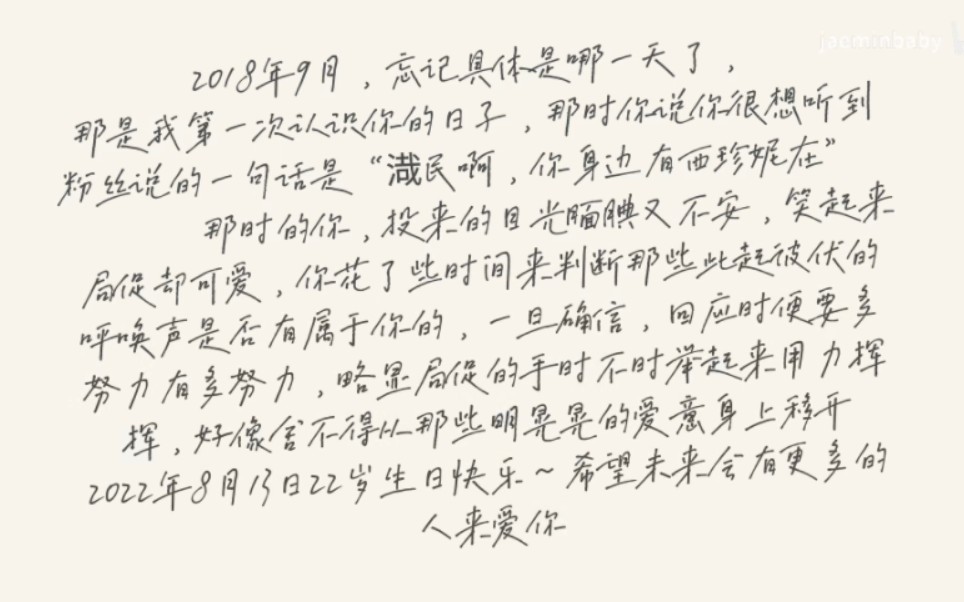 jaeminbaby
2018年9月，忘记具体是哪一天了，
那是我第一次认识你的日子，那时你说你很想听到
粉丝说的一句话是“渽民啊，你身边有西珍妮在”
那时的你，投来的目光腼腆又不安，笑起来
局促却可爱，你花了些时间来判断那些此起彼伏的
呼唤声是否有属于你的，一旦确信，回应时便要多
努力有多努力，略显局促的手时不时举起来用力挥
挥，好像舍不得从那些明晃晃的爱意身上移开
2022年8月13日22岁生日快乐～希望未来会有更多的
人来爱你